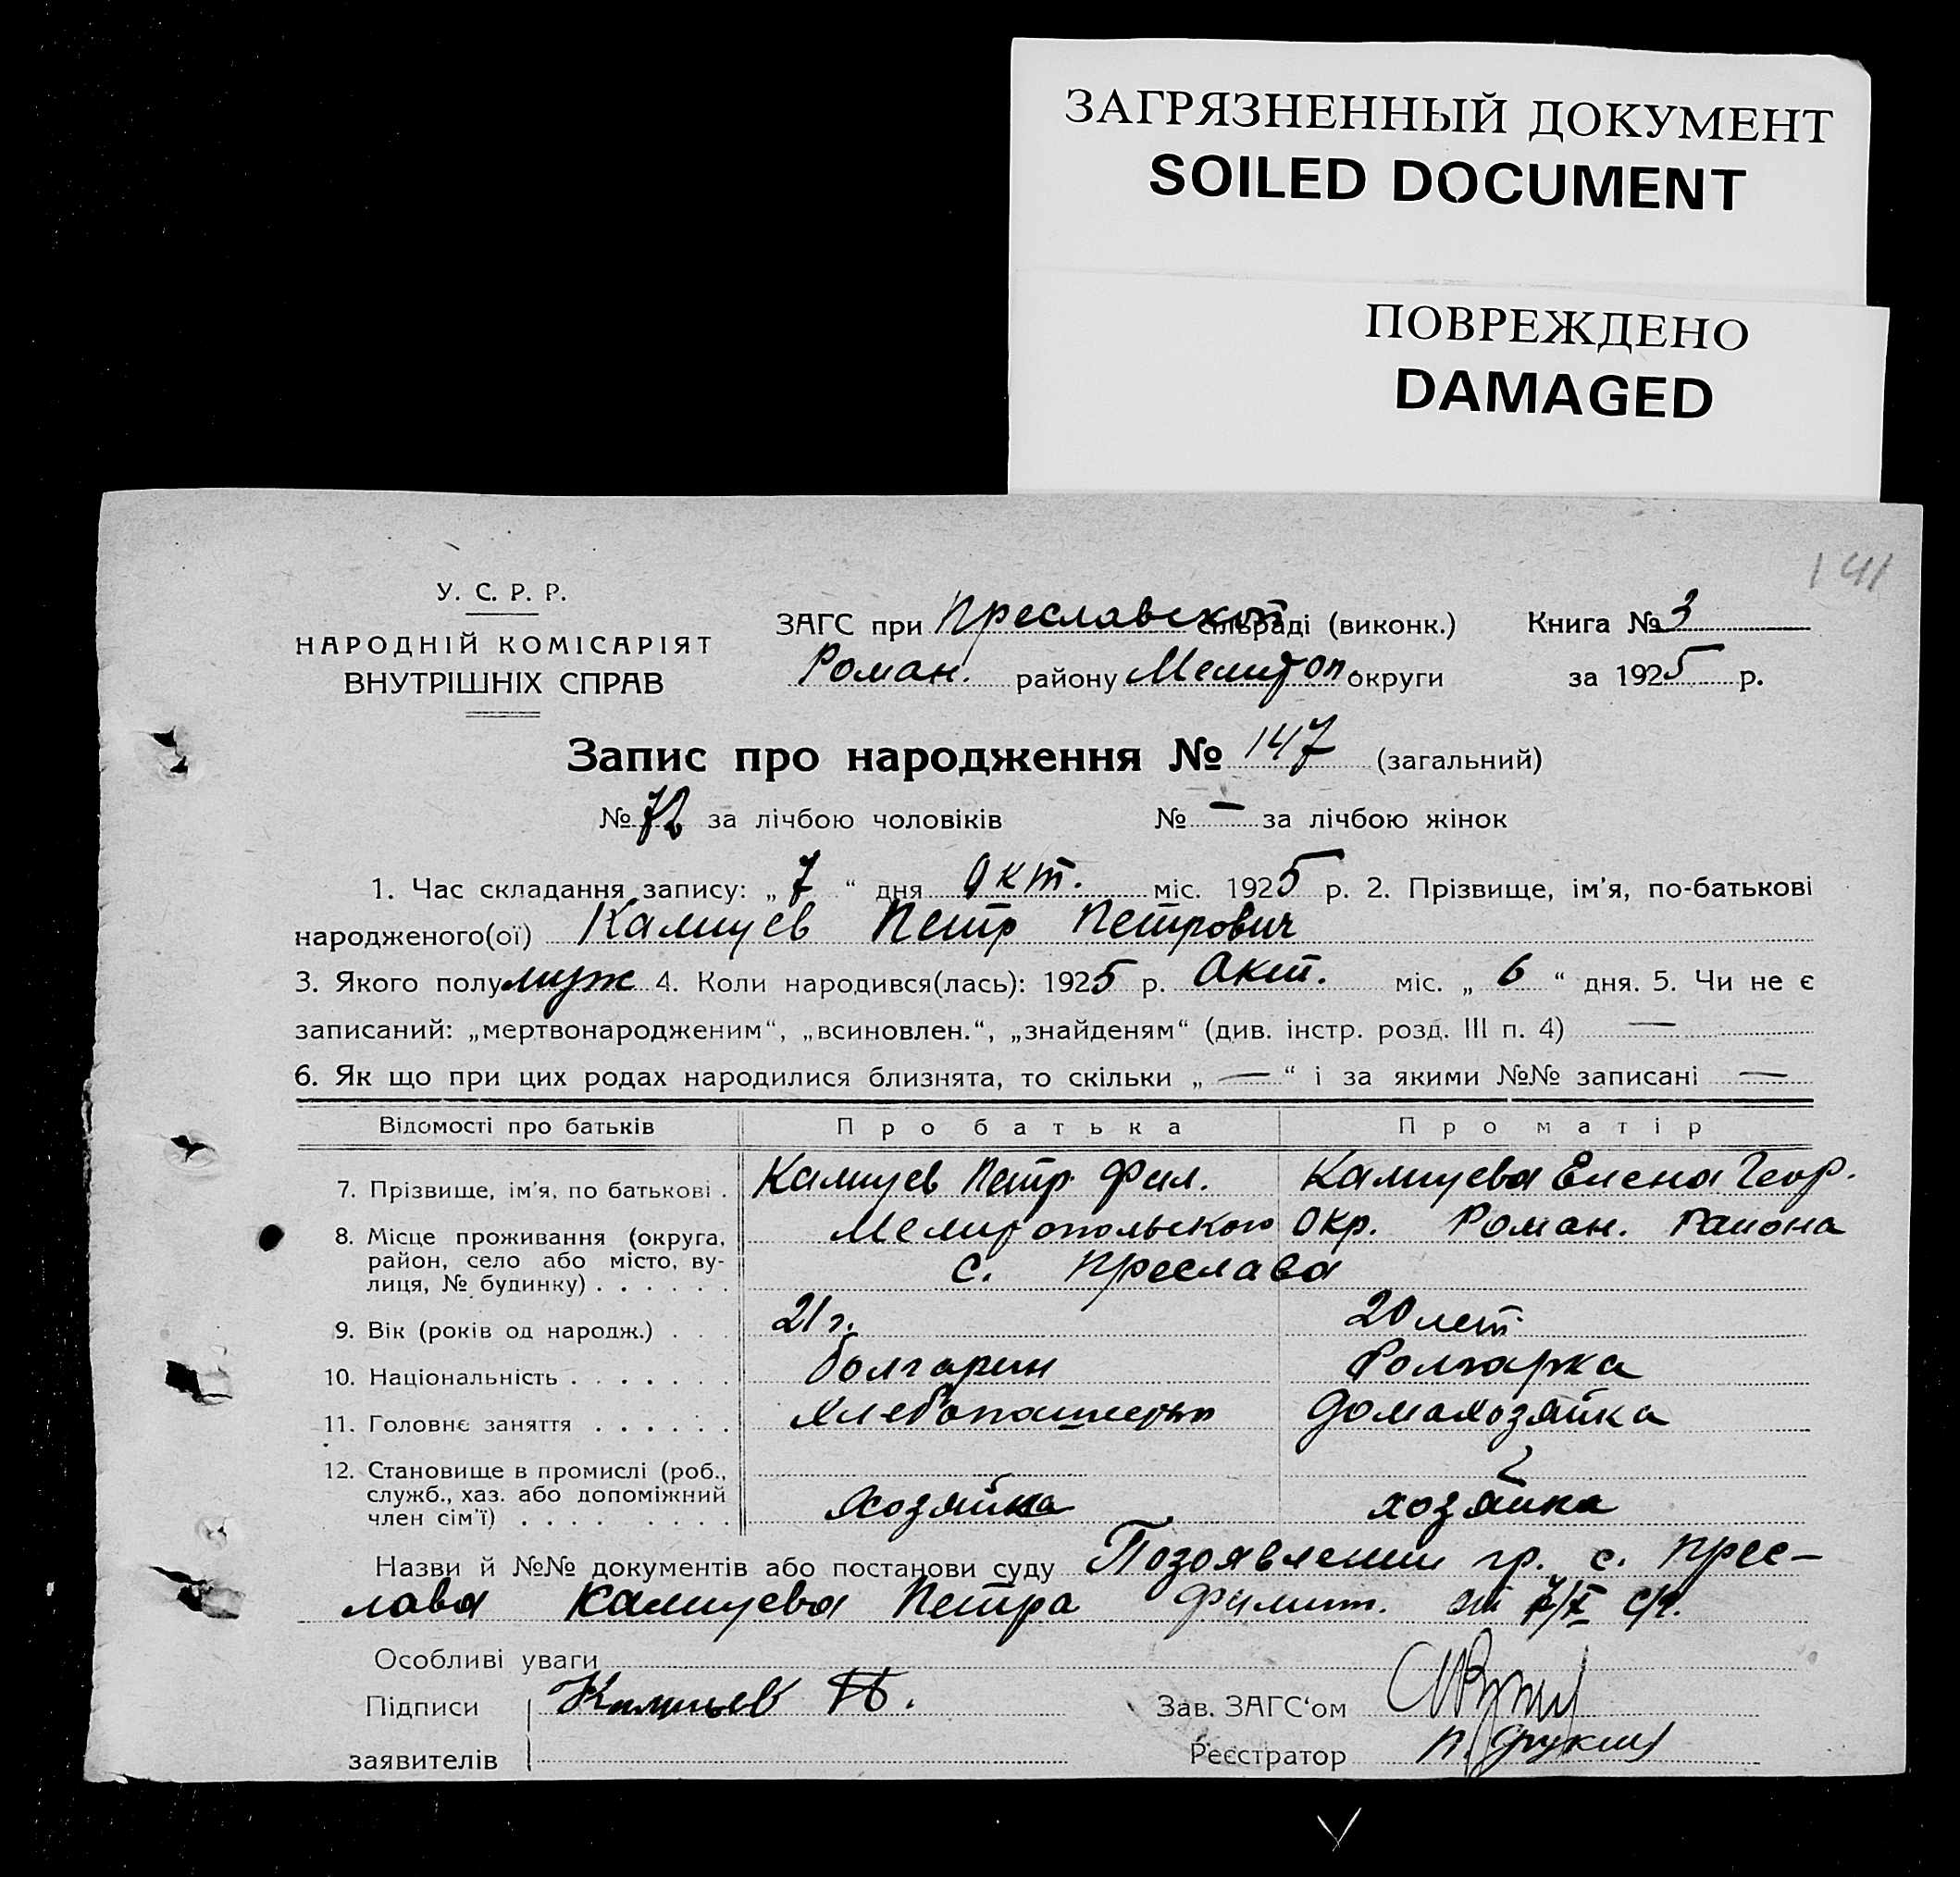 ЗАГРЯЗНЕННЫЙ ДОКУМЕНТ
SOILED DOCUMENT
ПОВРЕЖДЕНО
DAMAGED
141
У. С. Р. Р.
НАРОДНІЙ КОМІСАРІЯТ
ВНУТРІШНІХ СПРАВ
ЗАГС при Преславской сільраді (виконк.) Книга № 3
Роман. району Мелитоп. округи за 1925 р.
Запис про народження № 147 (загальний)
№ 72 за лічбою чоловіків № — за лічбою жінок
1. Час складання запису: „7“ дня Окт. міс. 1925 р. 2. Прізвище, ім'я, по-батькові
народженого(ої) Калицев Петр Петрович
3. Якого полу муж 4. Коли народився(лась): 1925 р. Окт. міс. „6“ дня. 5. Чи не є
записаний: „мертвонародженим“, „всиновлен.“, „знайденям“ (див. інстр. розд. III п. 4) —
6. Як що при цих родах народилися близнята, то скільки „—“ і за якими №№ записані —
Відомості про батьків Про батька Про матір
7. Прізвище, ім'я, по батькові . Калицев Петр Фил. Калицева Елена Геор.
8. Місце проживання (округа, район, село або місто, вулиця, № будинку) . . . . . . Мелитопольского Окр. Роман. Района
с. Преслава
9. Вік (років од народж.) . . . 21 г. 20 лет
10. Національність . . . . . . . болгарин болгарка
11. Головнє заняття . . . . . . Хлебопашество домахозяйка
12. Становище в промислі (роб.,
служб., хаз. або допоміжний
член сім'ї) . . . . . . . . Хозяйка хозяйка
Назви й №№ документів або постанови суду По зоявлении гр. с. Прес-
лава Калицева Петра Филип. от 7/X с/г.
Особливі уваги
Підписи Калицев П.
Зав. ЗАГС'ом
заявителів
Реєстратор П.